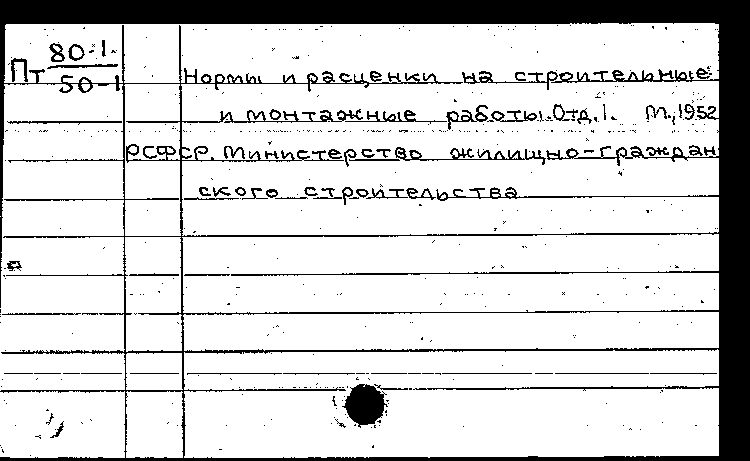 Пт 80-1.
50-1
Нормы и расценки на строительные
и монтажные работы. Отд. 1. М., 1952
РСФСР. Министерство жилищно-граждан
ского строительства